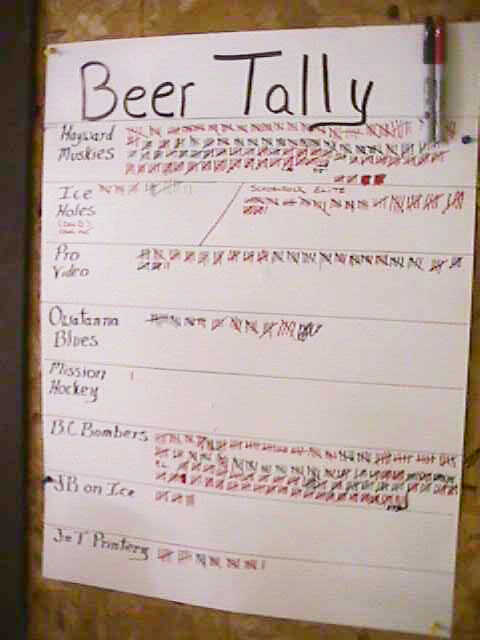 Beer Tally
Hayward
Muskies
Ice
Holes
Schoenrock Elite
Pro
Video
Owatanna
Blues
Mission
Hockey
BC Bombers
JB on Ice
J&T Printery